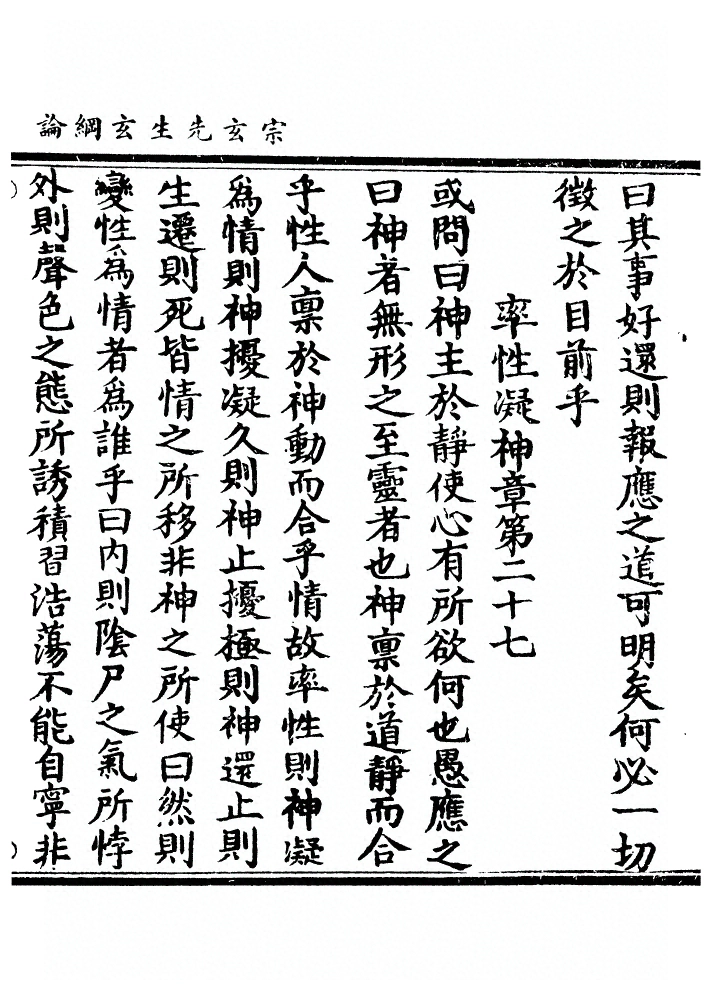 宗玄先生玄綱論
曰其事好還則報應之道可明矣何必一切
徵之於目前乎
率性凝神章第二十七
或問曰神主於靜使心有所欲何也愚應之
曰神者無形之至靈者也神禀於道靜而合
乎性人禀於神動而合乎情故率性則神凝
爲情則神擾凝久則神止擾極則神還止則
生遷則死皆情之所移非神之所使曰然則
變性爲情者爲誰乎曰内則陰尸之氣所悖
外則聲色之態所誘積習浩蕩不能自寧非